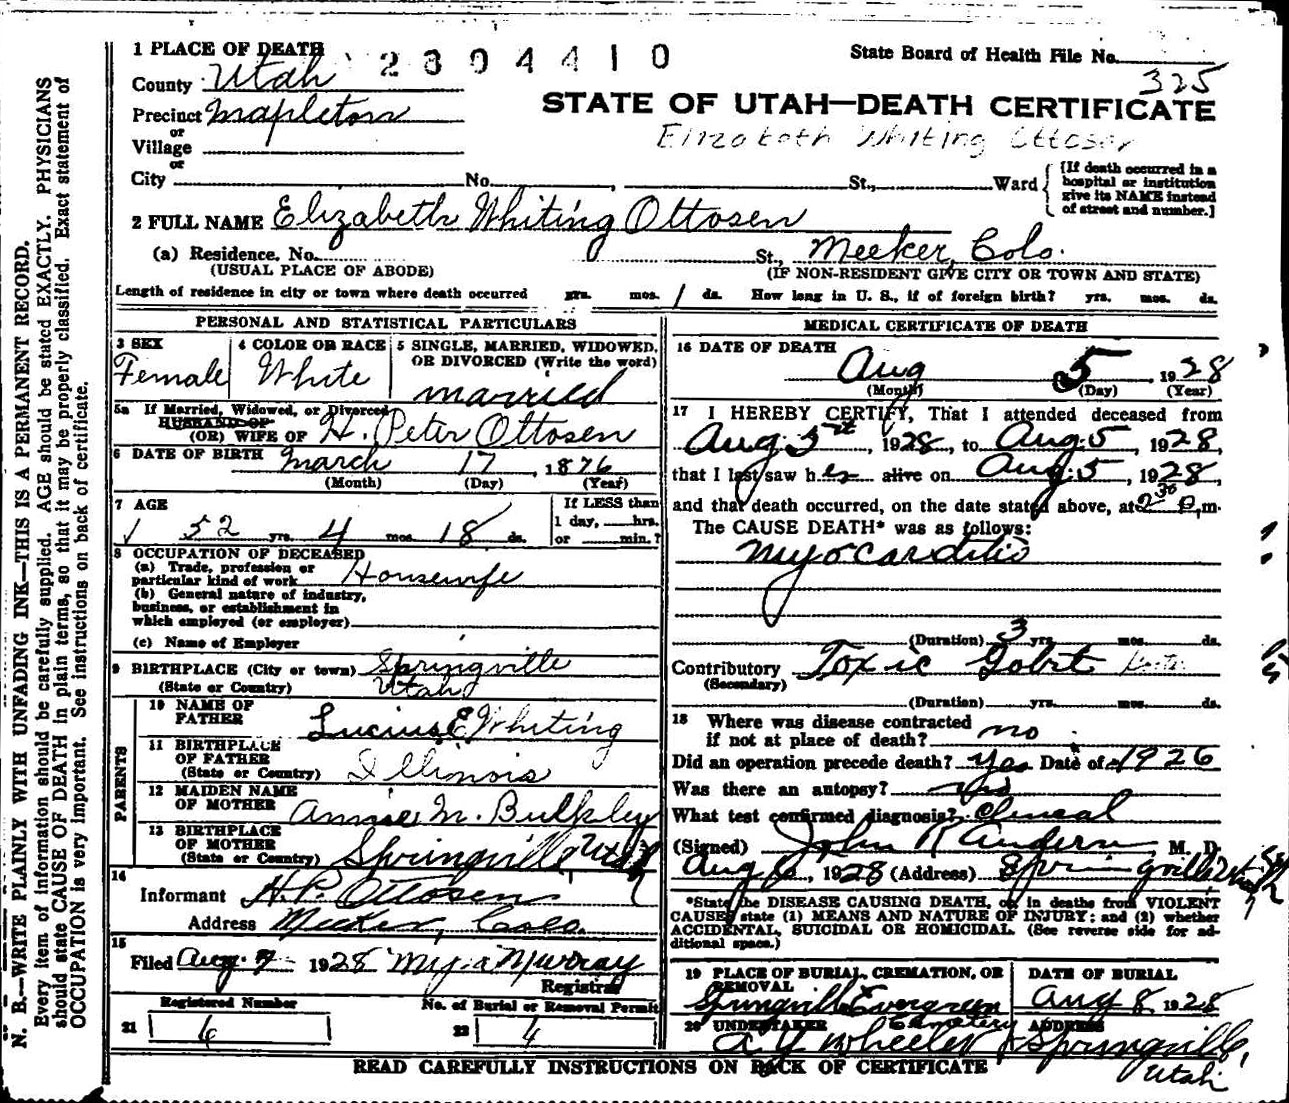 1 PLACE OF DEATH
2304410
State Board of Health File No.
County Utah
325
Precinct Mapleton
STATE OF UTAH—DEATH CERTIFICATE
or
Village
Elizabeth Whiting Ottosen
or
City No. , St., Ward
[If death occurred in a
hospital or institution
give its NAME instead
of street and number.]
2 FULL NAME Elizabeth Whiting Ottosen
(a) Residence. No. St., Meeker, Colo.
(USUAL PLACE OF ABODE) (IF NON-RESIDENT GIVE CITY OR TOWN AND STATE)
Length of residence in city or town where death occurred yrs. mos. 1 ds. How long in U. S., if of foreign birth? yrs. mos. ds.
PERSONAL AND STATISTICAL PARTICULARS
3 SEX
Female
4 COLOR OR RACE
White
5 SINGLE, MARRIED, WIDOWED,
OR DIVORCED (Write the word)
married
5a If Married, Widowed, or Divorced
HUSBAND OF
(OR) WIFE OF H. Peter Ottosen
6 DATE OF BIRTH March 17, 1876
(Month) (Day) (Year)
7 AGE
52 yrs. 4 mos. 18 ds.
If LESS than
1 day, hrs.
or min.?
8 OCCUPATION OF DECEASED
(a) Trade, profession or
particular kind of work Housewife
(b) General nature of industry,
business, or establishment in
which employed (or employer)
(c) Name of Employer
9 BIRTHPLACE (City or town) Springville
(State or Country) Utah
PARENTS
10 NAME OF
FATHER Lucius E Whiting
11 BIRTHPLACE
OF FATHER
(State or Country) Illinois
12 MAIDEN NAME
OF MOTHER Annie M. Bulkley
13 BIRTHPLACE
OF MOTHER
(State or Country) Springville Utah
14
Informant H.P. Ottosen
Address Meeker, Colo.
15
Filed Aug. 7 1928 Myra Murray
Registrar
Registered Number
21 6
No. of Burial or Removal Permit
22 4
MEDICAL CERTIFICATE OF DEATH
16 DATE OF DEATH
Aug 5, 1928
(Month) (Day) (Year)
17 I HEREBY CERTIFY, That I attended deceased from
Aug. 5, 1928, to Aug. 5, 1928,
that I last saw her alive on Aug. 5, 1928,
and that death occurred, on the date stated above, at 2 30 P.m.
The CAUSE DEATH* was as follows:
Myocarditis
(Duration) 3 yrs. mos. ds.
Contributory Toxic
(Secondary)
(Duration) yrs. mos. ds.
18 Where was disease contracted
if not at place of death? no
Did an operation precede death? yes Date of 1926
Was there an autopsy? no
What test confirmed diagnosis? clinical
(Signed) John R Anderson, M. D.
Aug 6, 1928 (Address) Springville Utah
*State the DISEASE CAUSING DEATH, or, in deaths from VIOLENT
CAUSES, state (1) MEANS AND NATURE OF INJURY; and (2) whether
ACCIDENTAL, SUICIDAL OR HOMICIDAL. (See reverse side for ad-
ditional space.)
19 PLACE OF BURIAL, CREMATION, OR
REMOVAL
Springville Evergreen
Cemetery
DATE OF BURIAL
Aug 8 1928
20 UNDERTAKER
A Y Wheeler
ADDRESS
Springville,
Utah
READ CAREFULLY INSTRUCTIONS ON BACK OF CERTIFICATE
N. B.—WRITE PLAINLY WITH UNFADING INK—THIS IS A PERMANENT RECORD.
Every item of information should be carefully supplied. AGE should be stated EXACTLY. PHYSICIANS
should state CAUSE OF DEATH in plain terms, so that it may be properly classified. Exact statement of
OCCUPATION is very important. See instructions on back of certificate.